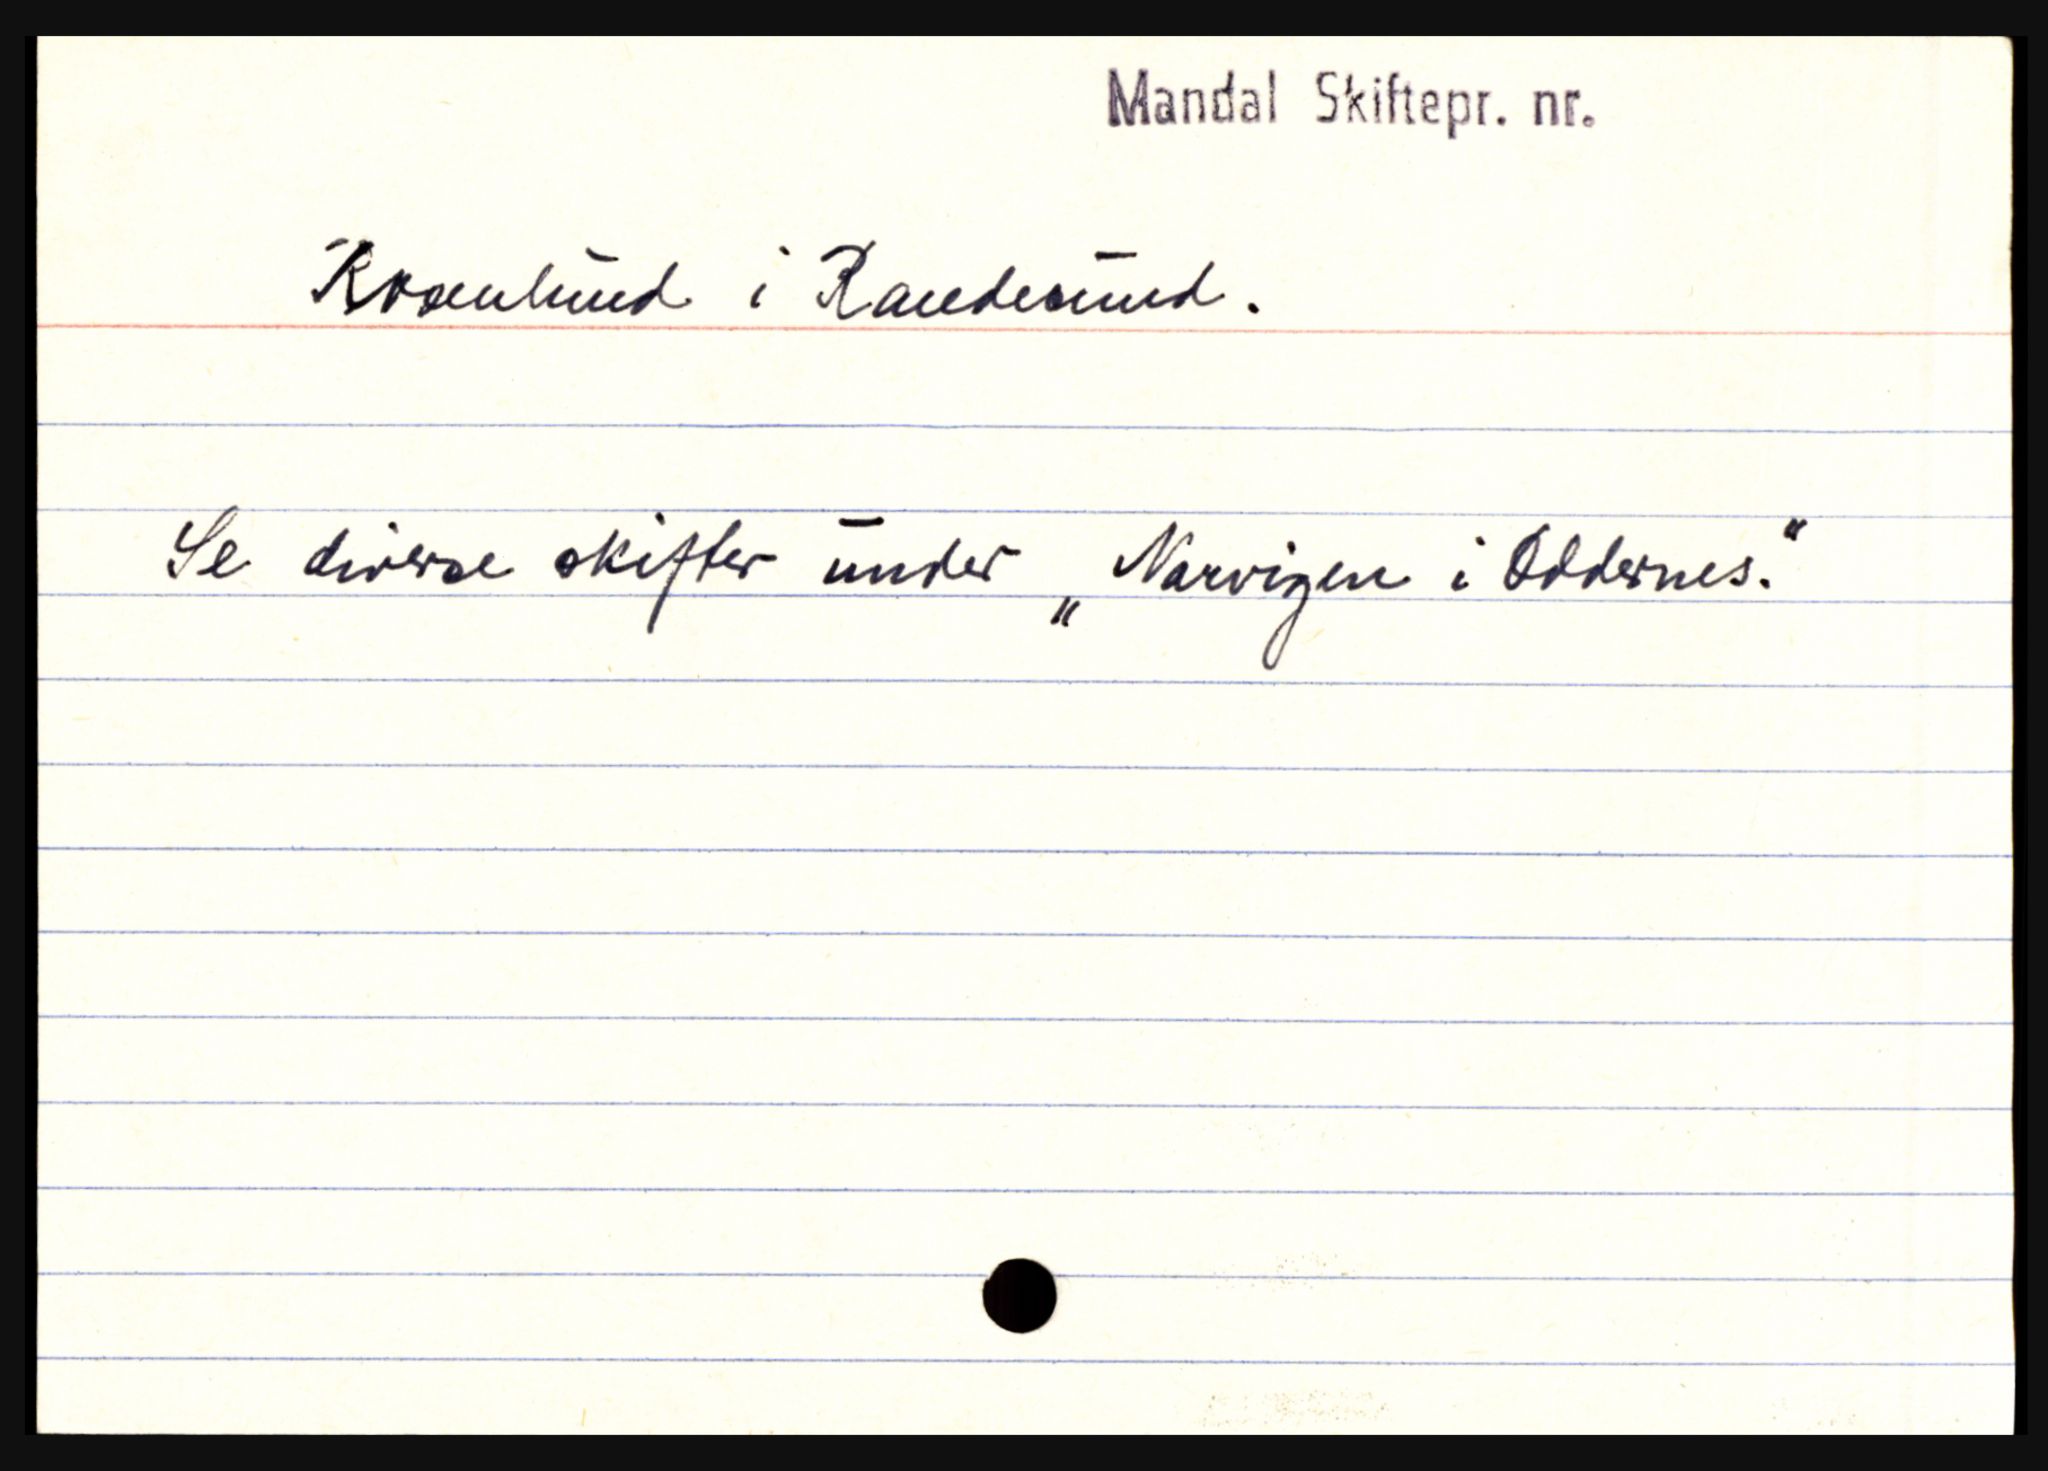 Mandal Skiftepr. nr.
Rosenlund i Randesund.
Se diverse skifter under „Narvigen i Oddernes.“